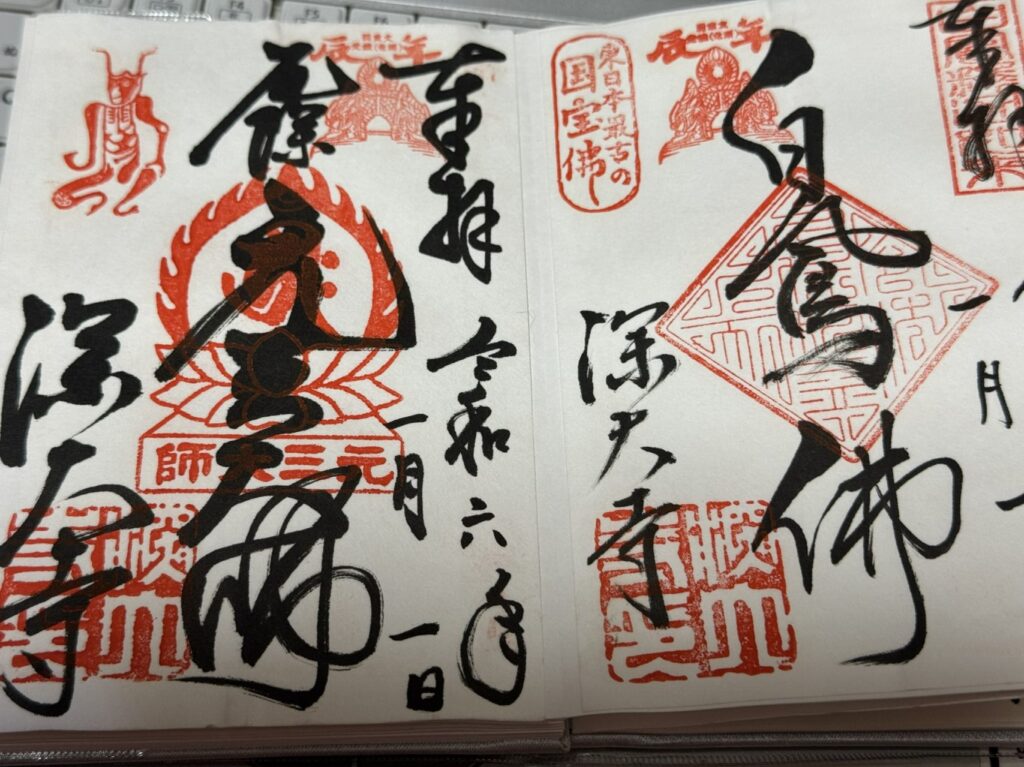 奉拝
一月
辰年
白鳳佛
東日本最古の
国宝佛
深大寺
奉拝
令和六年
一月一日
辰年
元三大師
元三大師
深大寺